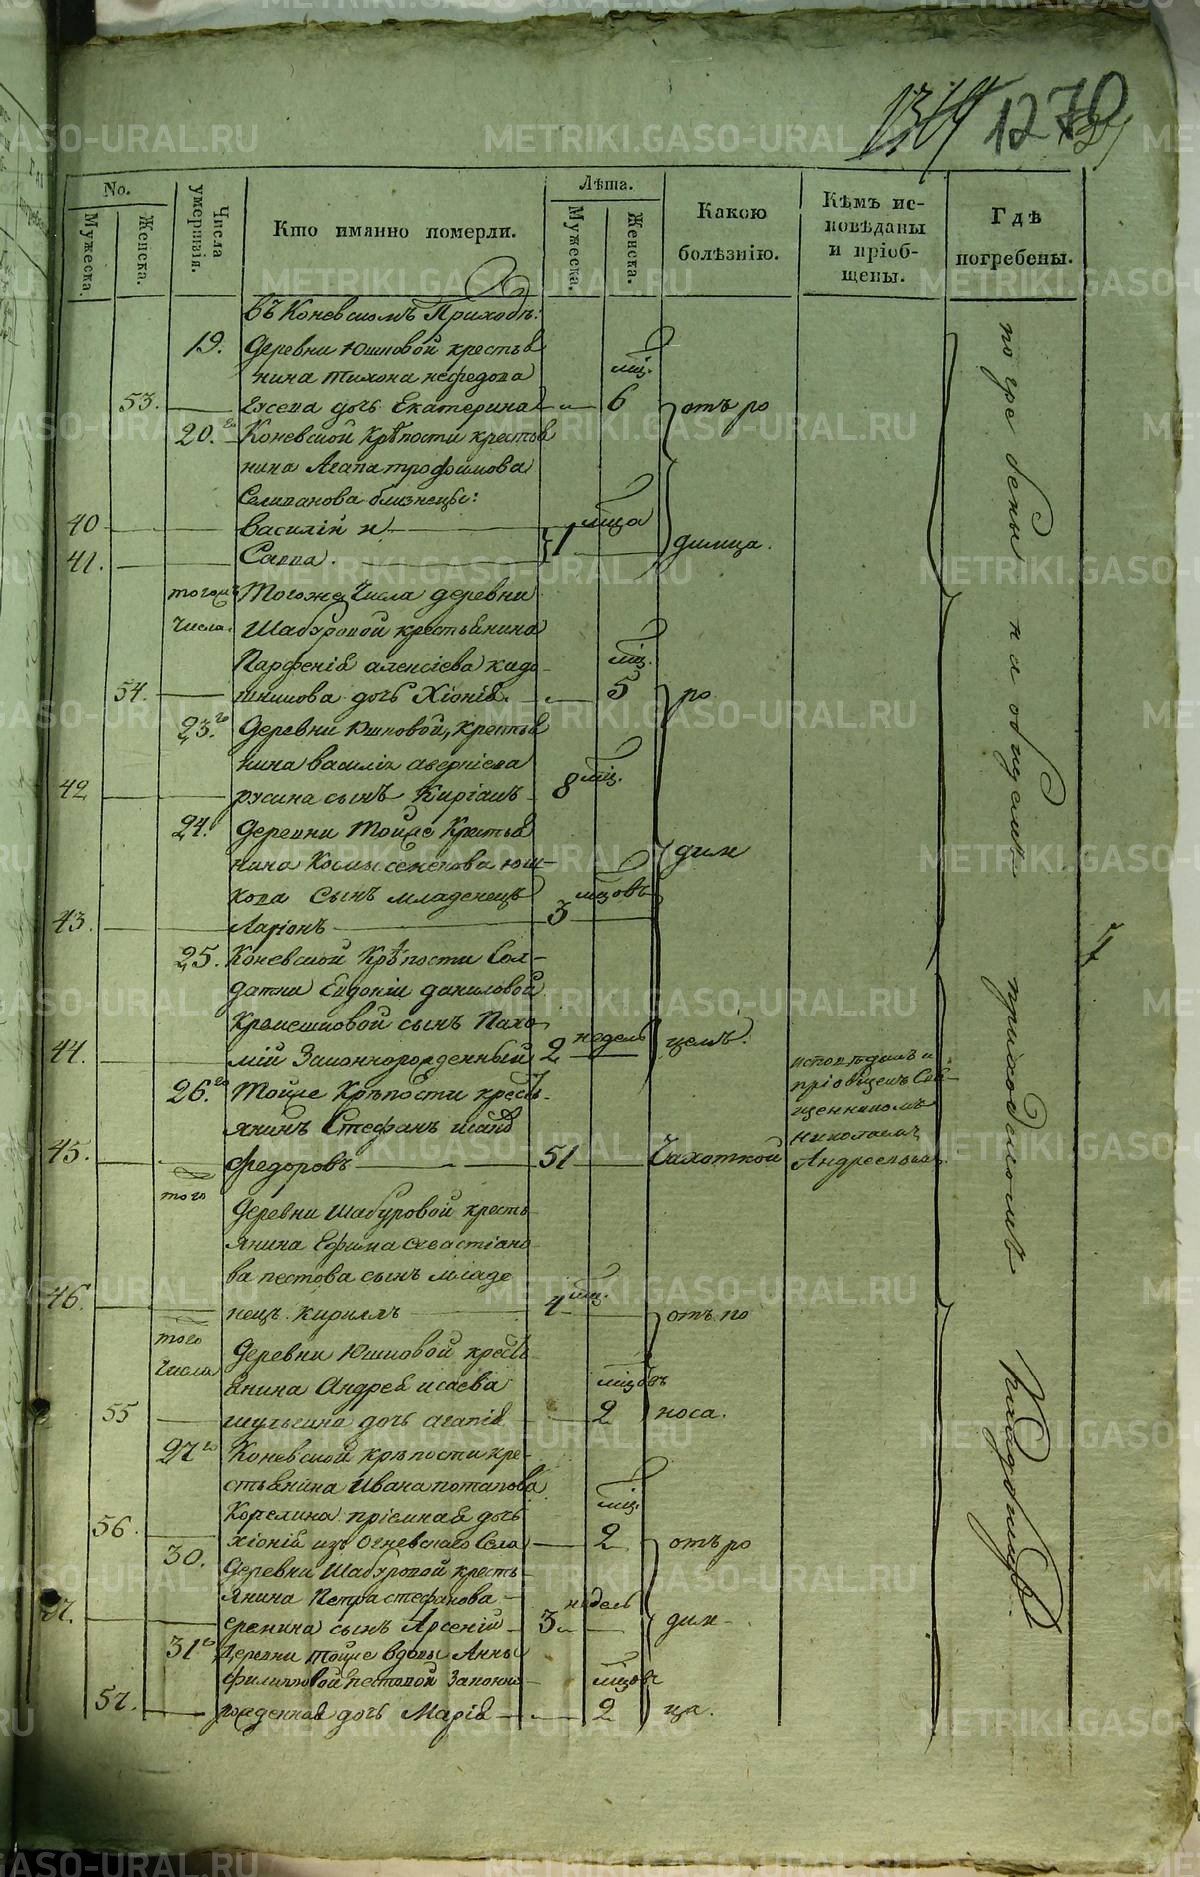 1270
No.
Мужеска.
Женска.
Числа умершихъ.
Кто имянно померли.
Лѣта.
Мужеска.
Женска.
Какою болѣзнію.
Кѣмъ исповѣданы и пріобщены.
Гдѣ погребены.
въ Коневскомъ Приходѣ:
19. Деревни Юшковой крестья
нина Тихона нефедова мц.
53. дочь Екатерина 6 отъ ро
20.го Коневской Крѣпости крестья
нина Агапа трофимова
Селиванова близнецы:
40 Василій и мцa
41. Савва. 1 димца.
тогожъ Тогоже Числа деревни
Числа. Шабуровой крестьянина
Парфенія алексіева кадо- мц.
54. шникова дочь Хіонія. 5 ро
23.го Деревни Юшковой, крестья
нина василія аверкіева
42 русина сынъ Киріакъ 8 мц.
24. Деревни Тойже Крестья
нина Космы семенова юш- дим
кова Сынъ младенецъ мцовъ
43. Ларіонъ 3
25. Коневской Крѣпости Сол-
датки Евдокіи даниловой
сынъ Пахо
44. мій Законнорожденный 2 недель цемъ.
26.го Тойже Крѣпости кресть-
янинъ Стефанъ
45. Федоровъ 51 Чахоткой
исповѣданъ и
пріобщенъ Свя-
щенникомъ
Николаемъ
Андреевымъ.
того
Деревни Шабуровой кресть-
янина Ефима Севастіано
ва пестова сынъ младе
46. нецъ Кириллъ 4 мц. отъ по
того Деревни Юшковой кресть
Числа янина Андрея исаева мцовъ
55 шульгина дочь агапія 2 носа.
27го Коневской крѣпости кре-
стьянина Ивана потапова
Карелина пріемная дочь мц.
56. Хіонія изъ Огневскаго Села 2 отъ ро
30. Деревни Шабуровой кресть-
янина Петра стефанова недель
47. еремина сынъ Арсеній 3 дим-
31го Деревни тойже вдовы Анны
филиповой пестовой Законно мцовъ
57. рожденная дочь Марія 2 ца.
погребены на общемъ приходскомъ Кладбищѣ.
METRIKI.GASO-URAL.RU